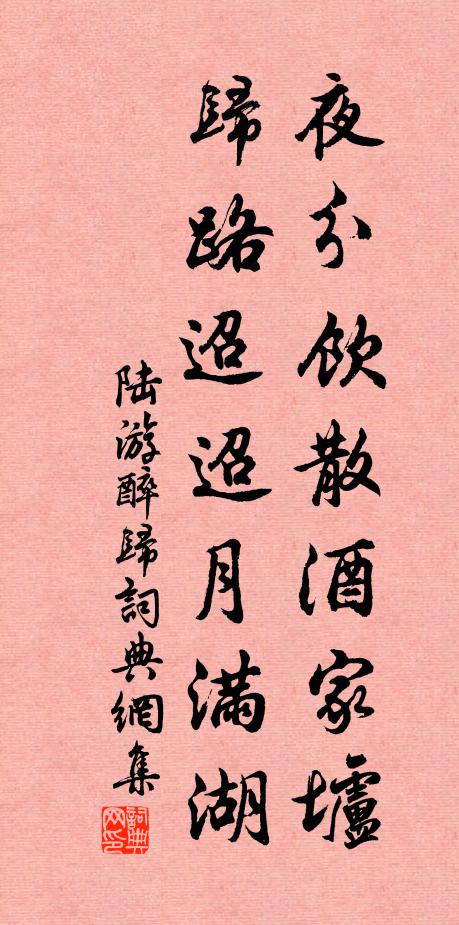 夜分飲散酒家壚
歸路迢迢月滿湖
陆游醉歸詞典網集
詞典网印